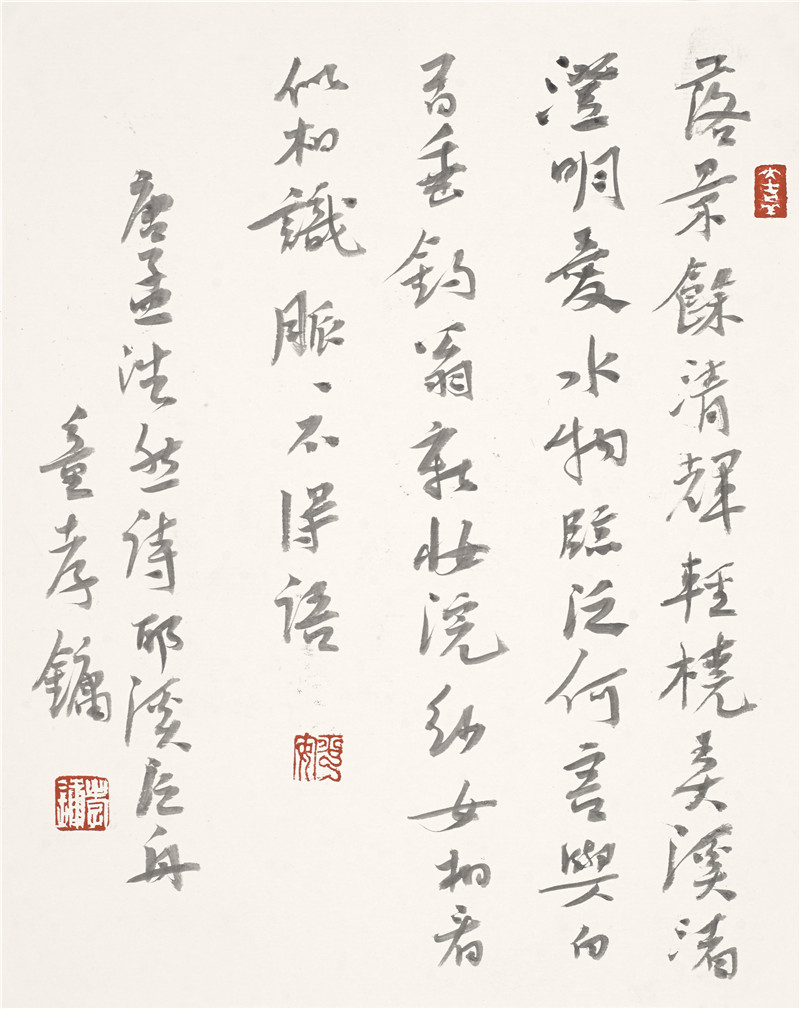 落景餘清輝輕橈弄溪渚
澄明愛水物臨泛何容與白
首垂釣翁新妝浣紗女相看
似相識脈、不得語
唐孟浩然詩耶溪泛舟
童孝鏞
孝鏞